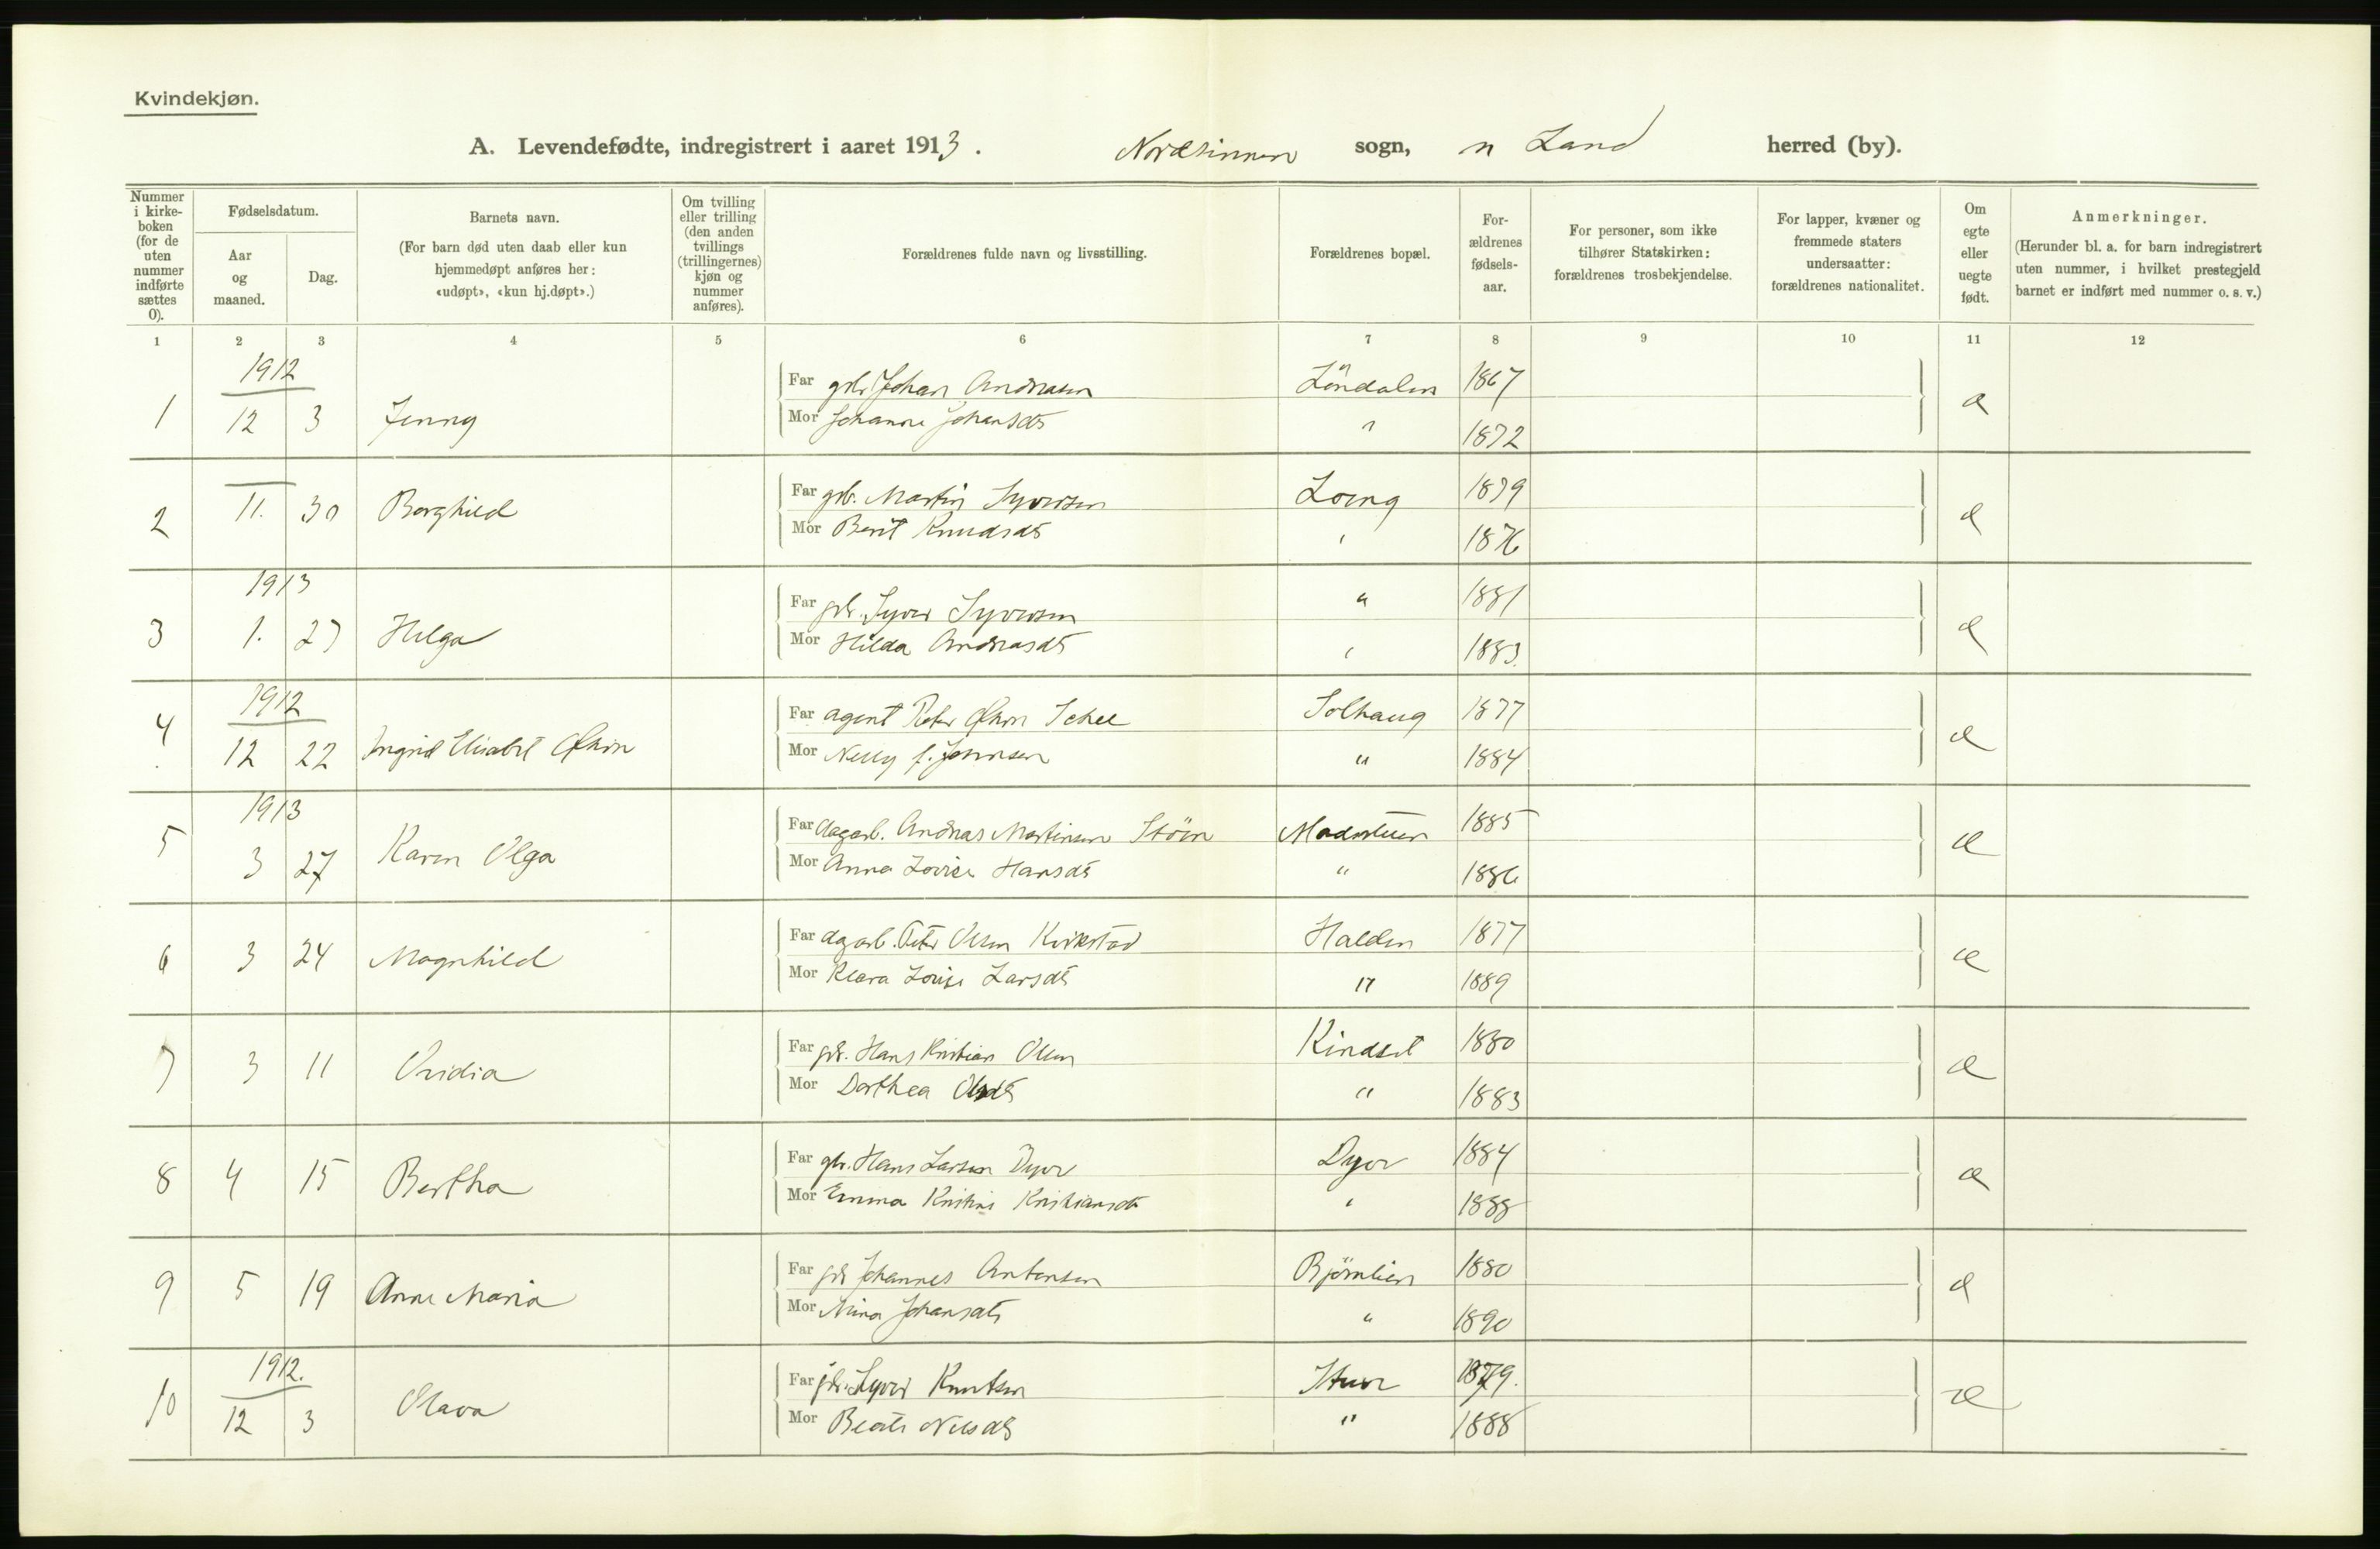 Kvindekjøn.
A. Levendefødte, indregistrert i aaret 1913. Nordsinnen sogn, n Land herred (by).
Nummer i kirke-boken (for de uten nummer indførte sættes 0).
Fødselsdatum.
Aar og maaned.
Dag.
Barnets navn.
(For barn død uten daab eller kun hjemmedøpt anføres her: «udøpt», «kun hj.døpt».)
Om tvilling eller trilling (den anden tvillings (trillingernes) kjøn og nummer anføres).
Forældrenes fulde navn og livsstilling.
Forældrenes bopæl.
For-ældrenes fødsels-aar.
For personer, som ikke tilhører Statskirken: forældrenes trosbekjendelse.
For lapper, kvæner og fremmede staters undersaatter: forældrenes nationalitet.
Om egte eller uegte født.
Anmerkninger.
(Herunder bl. a. for barn indregistrert uten nummer, i hvilket prestegjeld barnet er indført med nummer o. s. v.)
1 2 3 4 5 6 7 8 9 10 11 12
1912
Far Johan Andreasen 1867
1 12 3 Jenny æ
Mor Johanne Johansdt " 1872
Far gbr. Martin Syversen Loeng 1879
2 11. 30 Borghild æ
Mor Berit Knudsdt " 1876
1913
Far gbr. Syver Syversen " 1881
3 1. 27 Helga æ
Mor Hilda Andreasdt " 1883.
1912
Far agent Peter Olsen Schee Solhaug 1877
4 12 22 Ingrid Elisabet æ
Mor Nelly f. Jonnsen " 1884
1913
Far dagarb. Andreas Martinsen Stöen 1885
5 3 27 Karen Olga æ
Mor Anna Lovise Hansdt " 1886
Far dagarb. Peter Olsen Kvikstad Halden 1877
6 3 24 Magnhild æ
Mor Klara Lovise Larsdt " 1889
Far gbr. Hans Kristian Olsen Kindset 1880
7 3 11 Ovidia æ
Mor Dorthea Olsdt " 1883
Far gbr. Hans Larsen Dyor Dyor 1884
8 4 15 Bertha æ
Mor Emma Kristine Kristiansdt " 1888
Far gbr Johannes Antonsen Björnlien 1880
9 5 19 Anne Maria æ
Mor Mina Johansdt " 1890
1912.
Far gbr. Syver Knutsen 1879.
10 12 3 Olava æ
Mor Beate Nilsdt " 1888